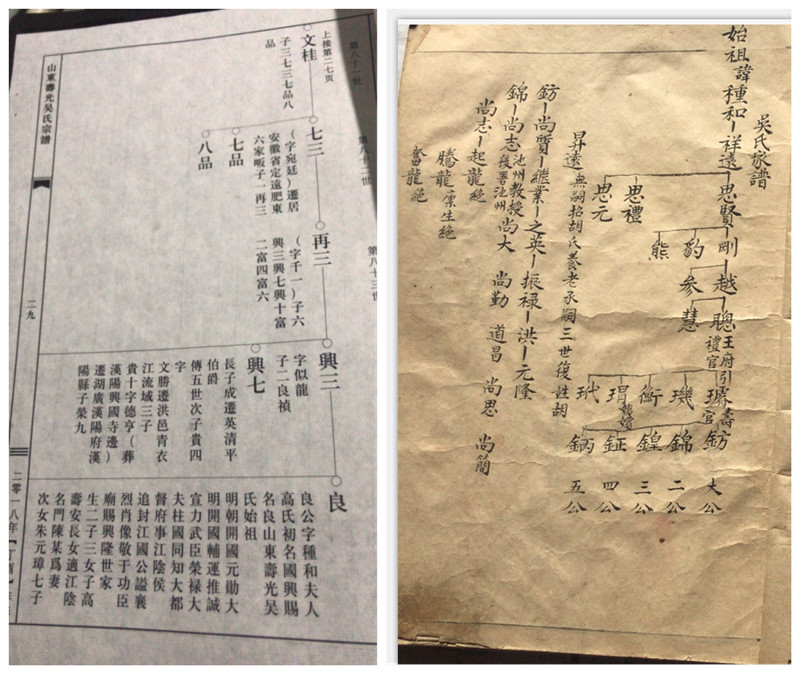 第八十一世
上接第二七页
文桂
子三七三七品八
品
第八十二世
七三
(字宛廷)遷居
安徽省定遠肥東
六家畈子一再三
七品
八品
第八十三世
再三
(字千一)子六
興三興七興十富
二富四富六
興三
字似龍
子二良禎
興七
長子成遷英清平
伯爵
傳五世次子貴四
字
文勝遷洪邑青衣
江流域三子
貴十字德亨(葬
漢陽興國寺邊)
遷湖廣漢陽府漢
陽縣子榮九
良
良公字種和夫人
高氏初名國興賜
名良山東壽光吴
氏始祖
明朝開國元勛大
明開國輔運推誠
宣力武臣榮禄大
夫柱國同知大都
督府事江陰侯
追封江國公謚襄
烈肖像敬于功臣
廟賜興隆世家
生二子三女子高
壽安長女適江陰
名門陳某爲妻
次女朱元璋七子
山東壽光吴氏宗譜
二九
二零一八年
吴氏家譜
始祖諱種和-祥遠-思賢-剛-越-聰王府引禮官
思禮
思元
豹
熊
参
慧
璿壽官
璣
衡
瑁
玳
鈁
錦
鍠
鉦
鈵
大公
二公
三公
四公
五公
昇遠無嗣招胡氏養老承嗣三世復姓胡
鈁-尚賓-繼業-之英-振禄-洪-元隆
錦-尚志池州教授後署池州 尚大 尚勤 道昌 尚思 尚簡
尚志-起龍絶
騰龍廩生絶
奮龍絶